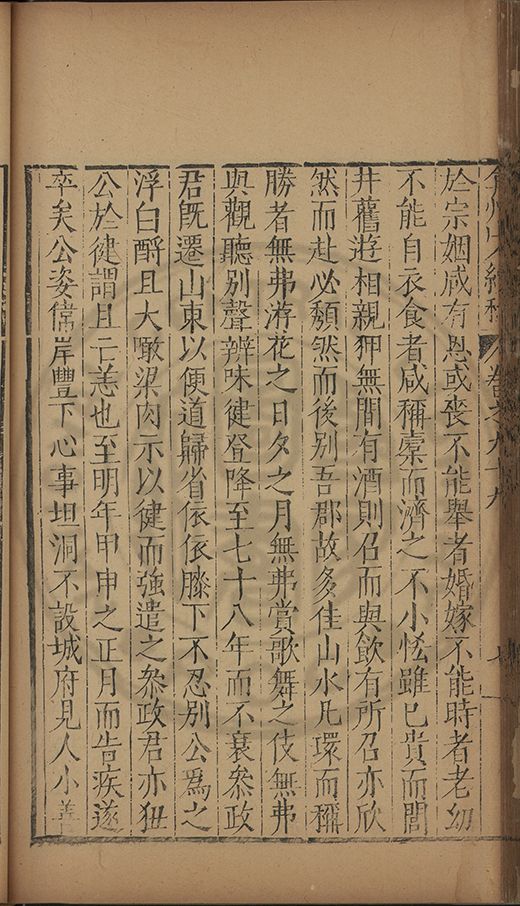 卷之九十九
於宗姻咸有恩或喪不能舉者婚嫁不能時者老幼
不能自衣食者咸稱橐而濟之不小恡雖已貴而閭
井舊遊相親狎無間有酒則召而與飲有所召亦欣
然而赴必頹然而後別吾郡故多佳山水凡環而稱
勝者無弗游花之日夕之月無弗賞歌舞之伎無弗
與觀聽別聲辨味健登降至七十八年而不衰叅政
君旣遷山東以便道歸省依依膝下不忍別公為之
浮白酹且大噉粱肉示以健而強遣之叅政君亦狃
公於健謂且亡恙也至明年甲申之正月而告疾遂
卒矣公姿偉岸豐下心事坦洞不設城府見人小善